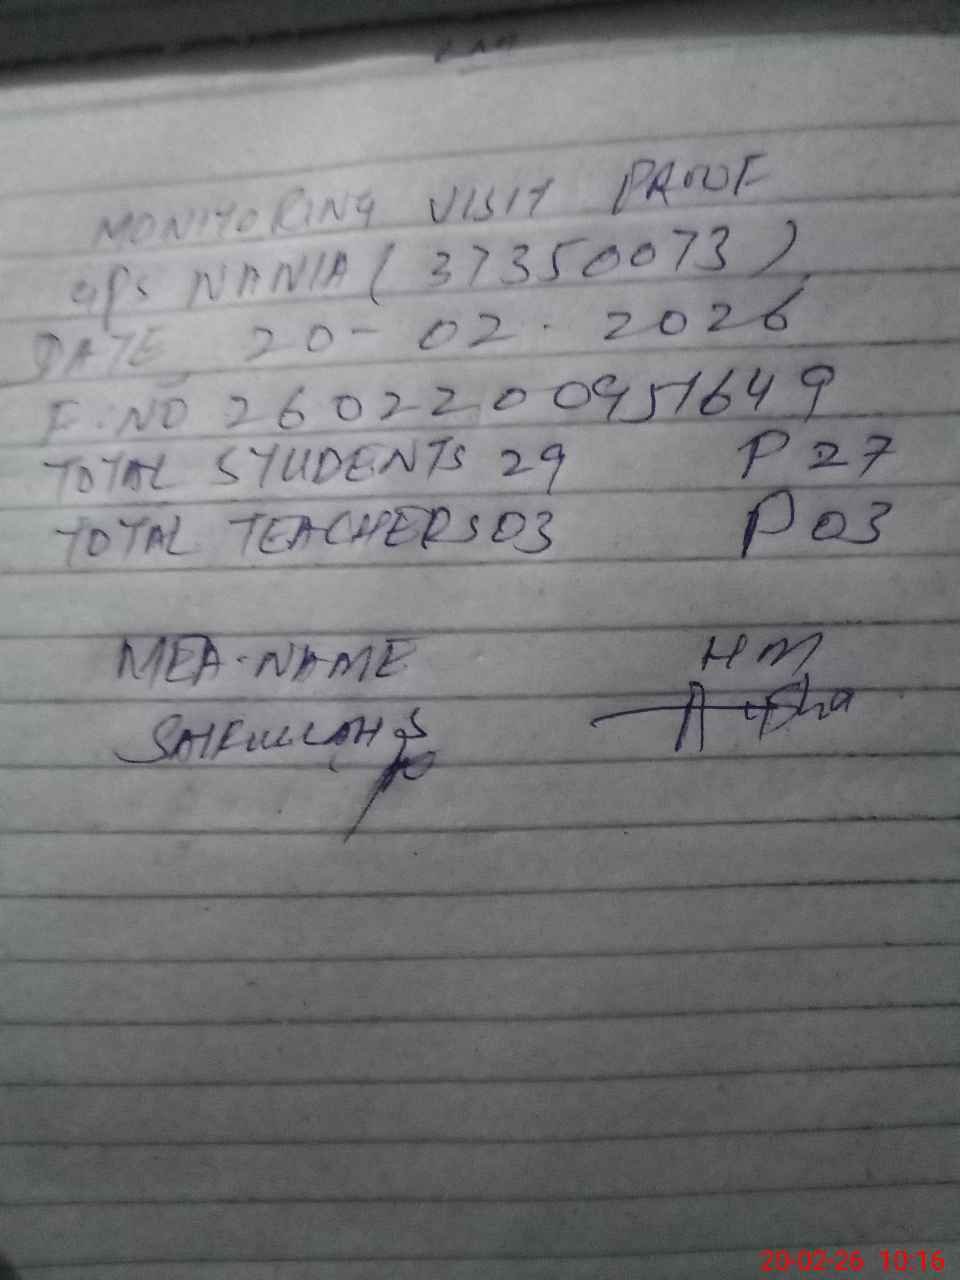 MONITORING VISIT PROOF
GPS NANIA (37350073)
DATE 20-02-2026
F.NO 2602200951649
TOTAL STUDENTS 29 P 27
TOTAL TEACHERS 03 P 03
MEA-NAME HM
SAIFULLAH Aysha
20-02-26 10:16